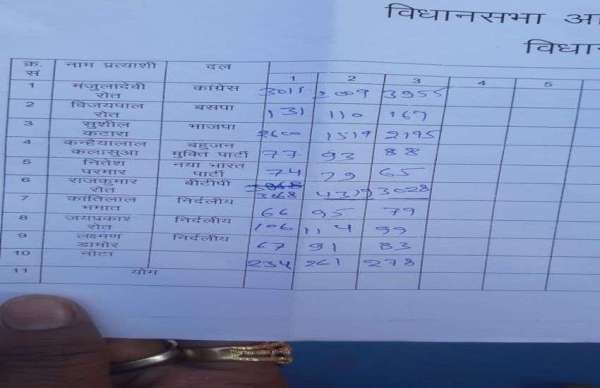 विधानसभा आ
विधान
क्र. सं नाम प्रत्याशी दल 1 2 3 4 5
1 मंजुलादेवी रोत कांग्रेस 3955
2 विजयपाल रोत बसपा 131 110 167
3 सुशील कटारा भाजपा 2600 1519 2795
4 कन्हैयालाल कलासुआ बहुजन मुक्ति पार्टी 77 93 88
5 नितेश परमार नया भारत पार्टी 74 79 65
6 राजकुमार रोत बीटीपी 3028
7 कांतिलाल भमात निर्दलीय 66 95 79
8 जयप्रकाश रोत निर्दलीय 106 114 99
9 लक्ष्मण डामोर निर्दलीय 67 91 83
10 नोटा 234 261 278
11 योग